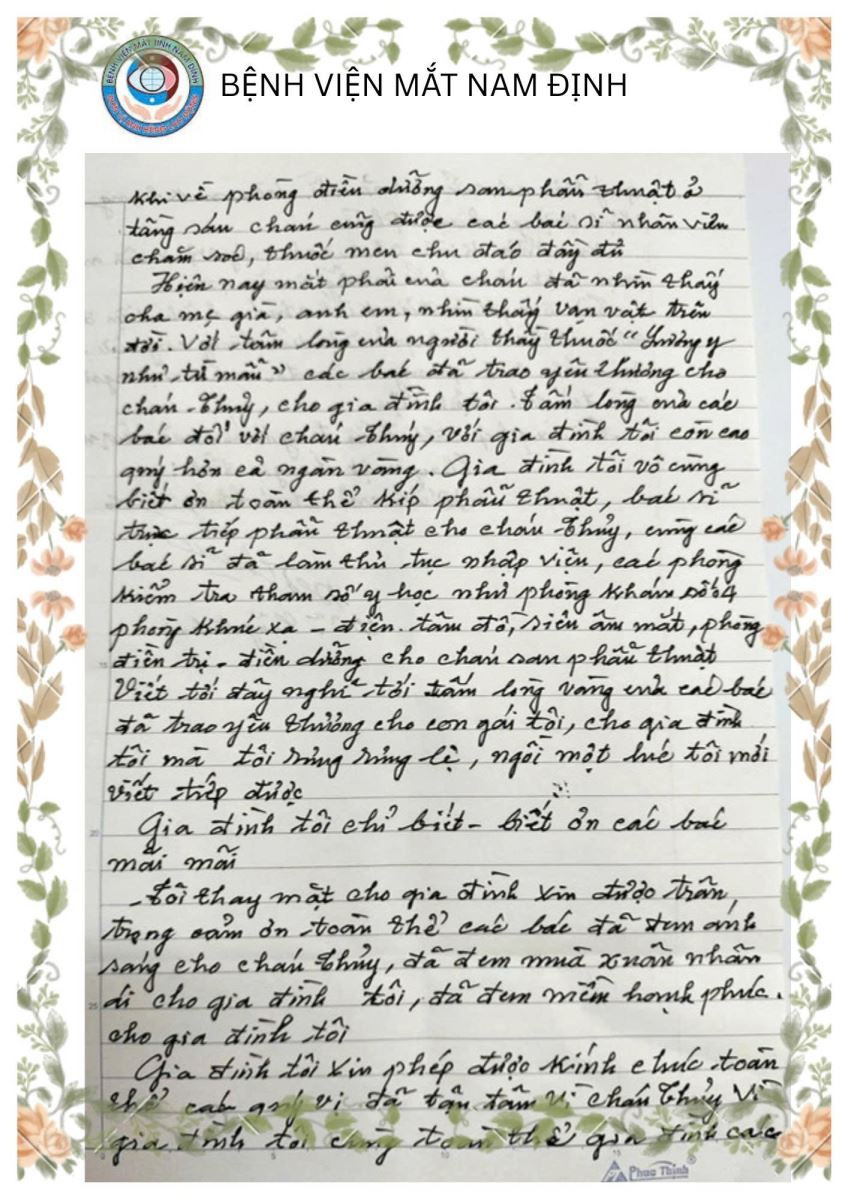 BỆNH VIỆN MẮT TỈNH NAM ĐỊNH
BỆNH VIỆN MẮT NAM ĐỊNH
Khi về phòng điều dưỡng sau phẫu thuật ở
tầng sáu cháu cũng được các bác sĩ nhân viên
chăm sóc, thuốc men chu đáo đầy đủ
Hiện nay mắt phải của cháu đã nhìn thấy
cha mẹ già, anh em, nhìn thấy vạn vật trên
đời. Với tấm lòng của người thầy thuốc "Lương y
như từ mẫu" các bác đã trao yêu thương cho
cháu Thủy, cho gia đình tôi. Tấm lòng của các
bác đối với cháu Thủy, với gia đình tôi còn cao
quý hơn cả ngàn vàng. Gia đình tôi vô cùng
biết ơn toàn thể kíp phẫu thuật, bác sĩ
trực tiếp phẫu thuật cho cháu Thủy, cùng các
bác sĩ đã làm thủ tục nhập viện, các phòng
kiểm tra tham số y học như phòng khám số 4
phòng khúc xạ - điện tâm đồ, siêu âm mắt, phòng
điều trị - điều dưỡng cho cháu sau phẫu thuật
Viết tới đây nghĩ tới tấm lòng vàng của các bác
đã trao yêu thương cho con gái tôi, cho gia đình
tôi mà tôi rưng rưng lệ, ngồi một lúc tôi mới
viết tiếp được
Gia đình tôi chỉ biết - biết ơn các bác
mãi mãi
- Tôi thay mặt cho gia đình xin được trân
trọng cảm ơn toàn thể các bác đã đem ánh
sáng cho cháu Thủy, đã đem mùa xuân nhân
ái cho gia đình tôi, đã đem niềm hạnh phúc.
cho gia đình tôi
Gia đình tôi xin phép được kính chúc toàn
thể các quý vị đã tận tâm vì cháu Thủy vì
gia đình tôi cùng toàn thể gia đình các
Phuc Thinh